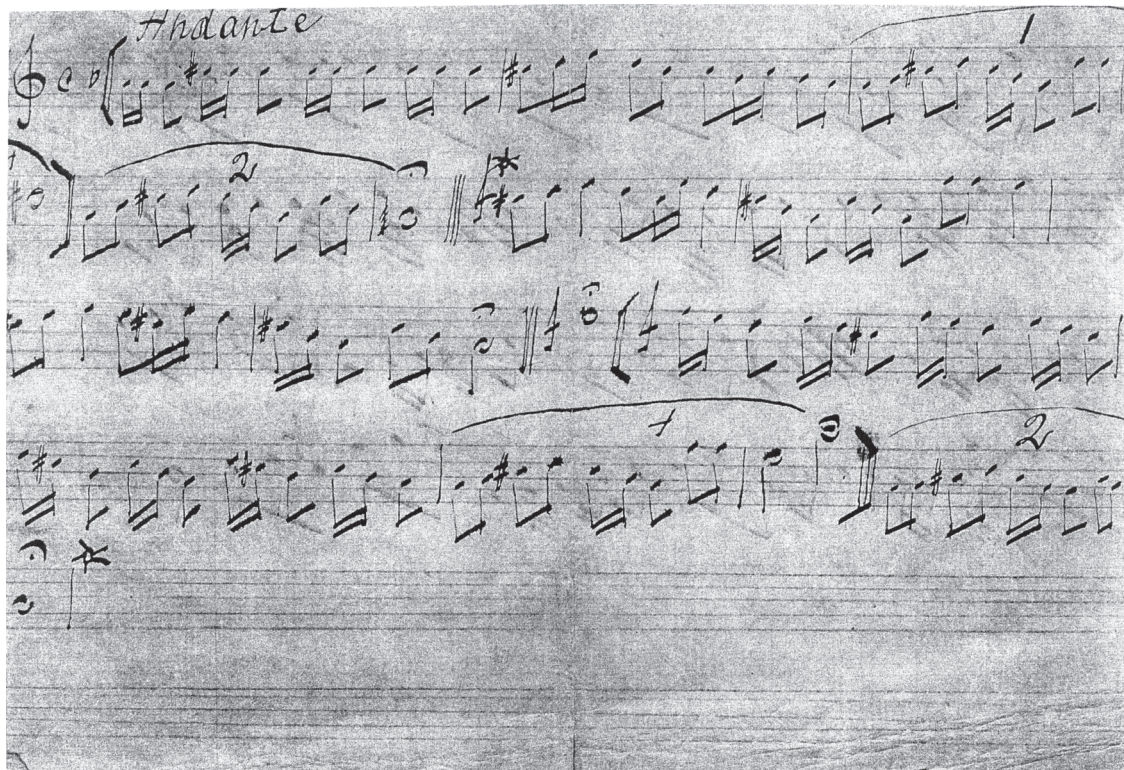 Andante
1
2
2